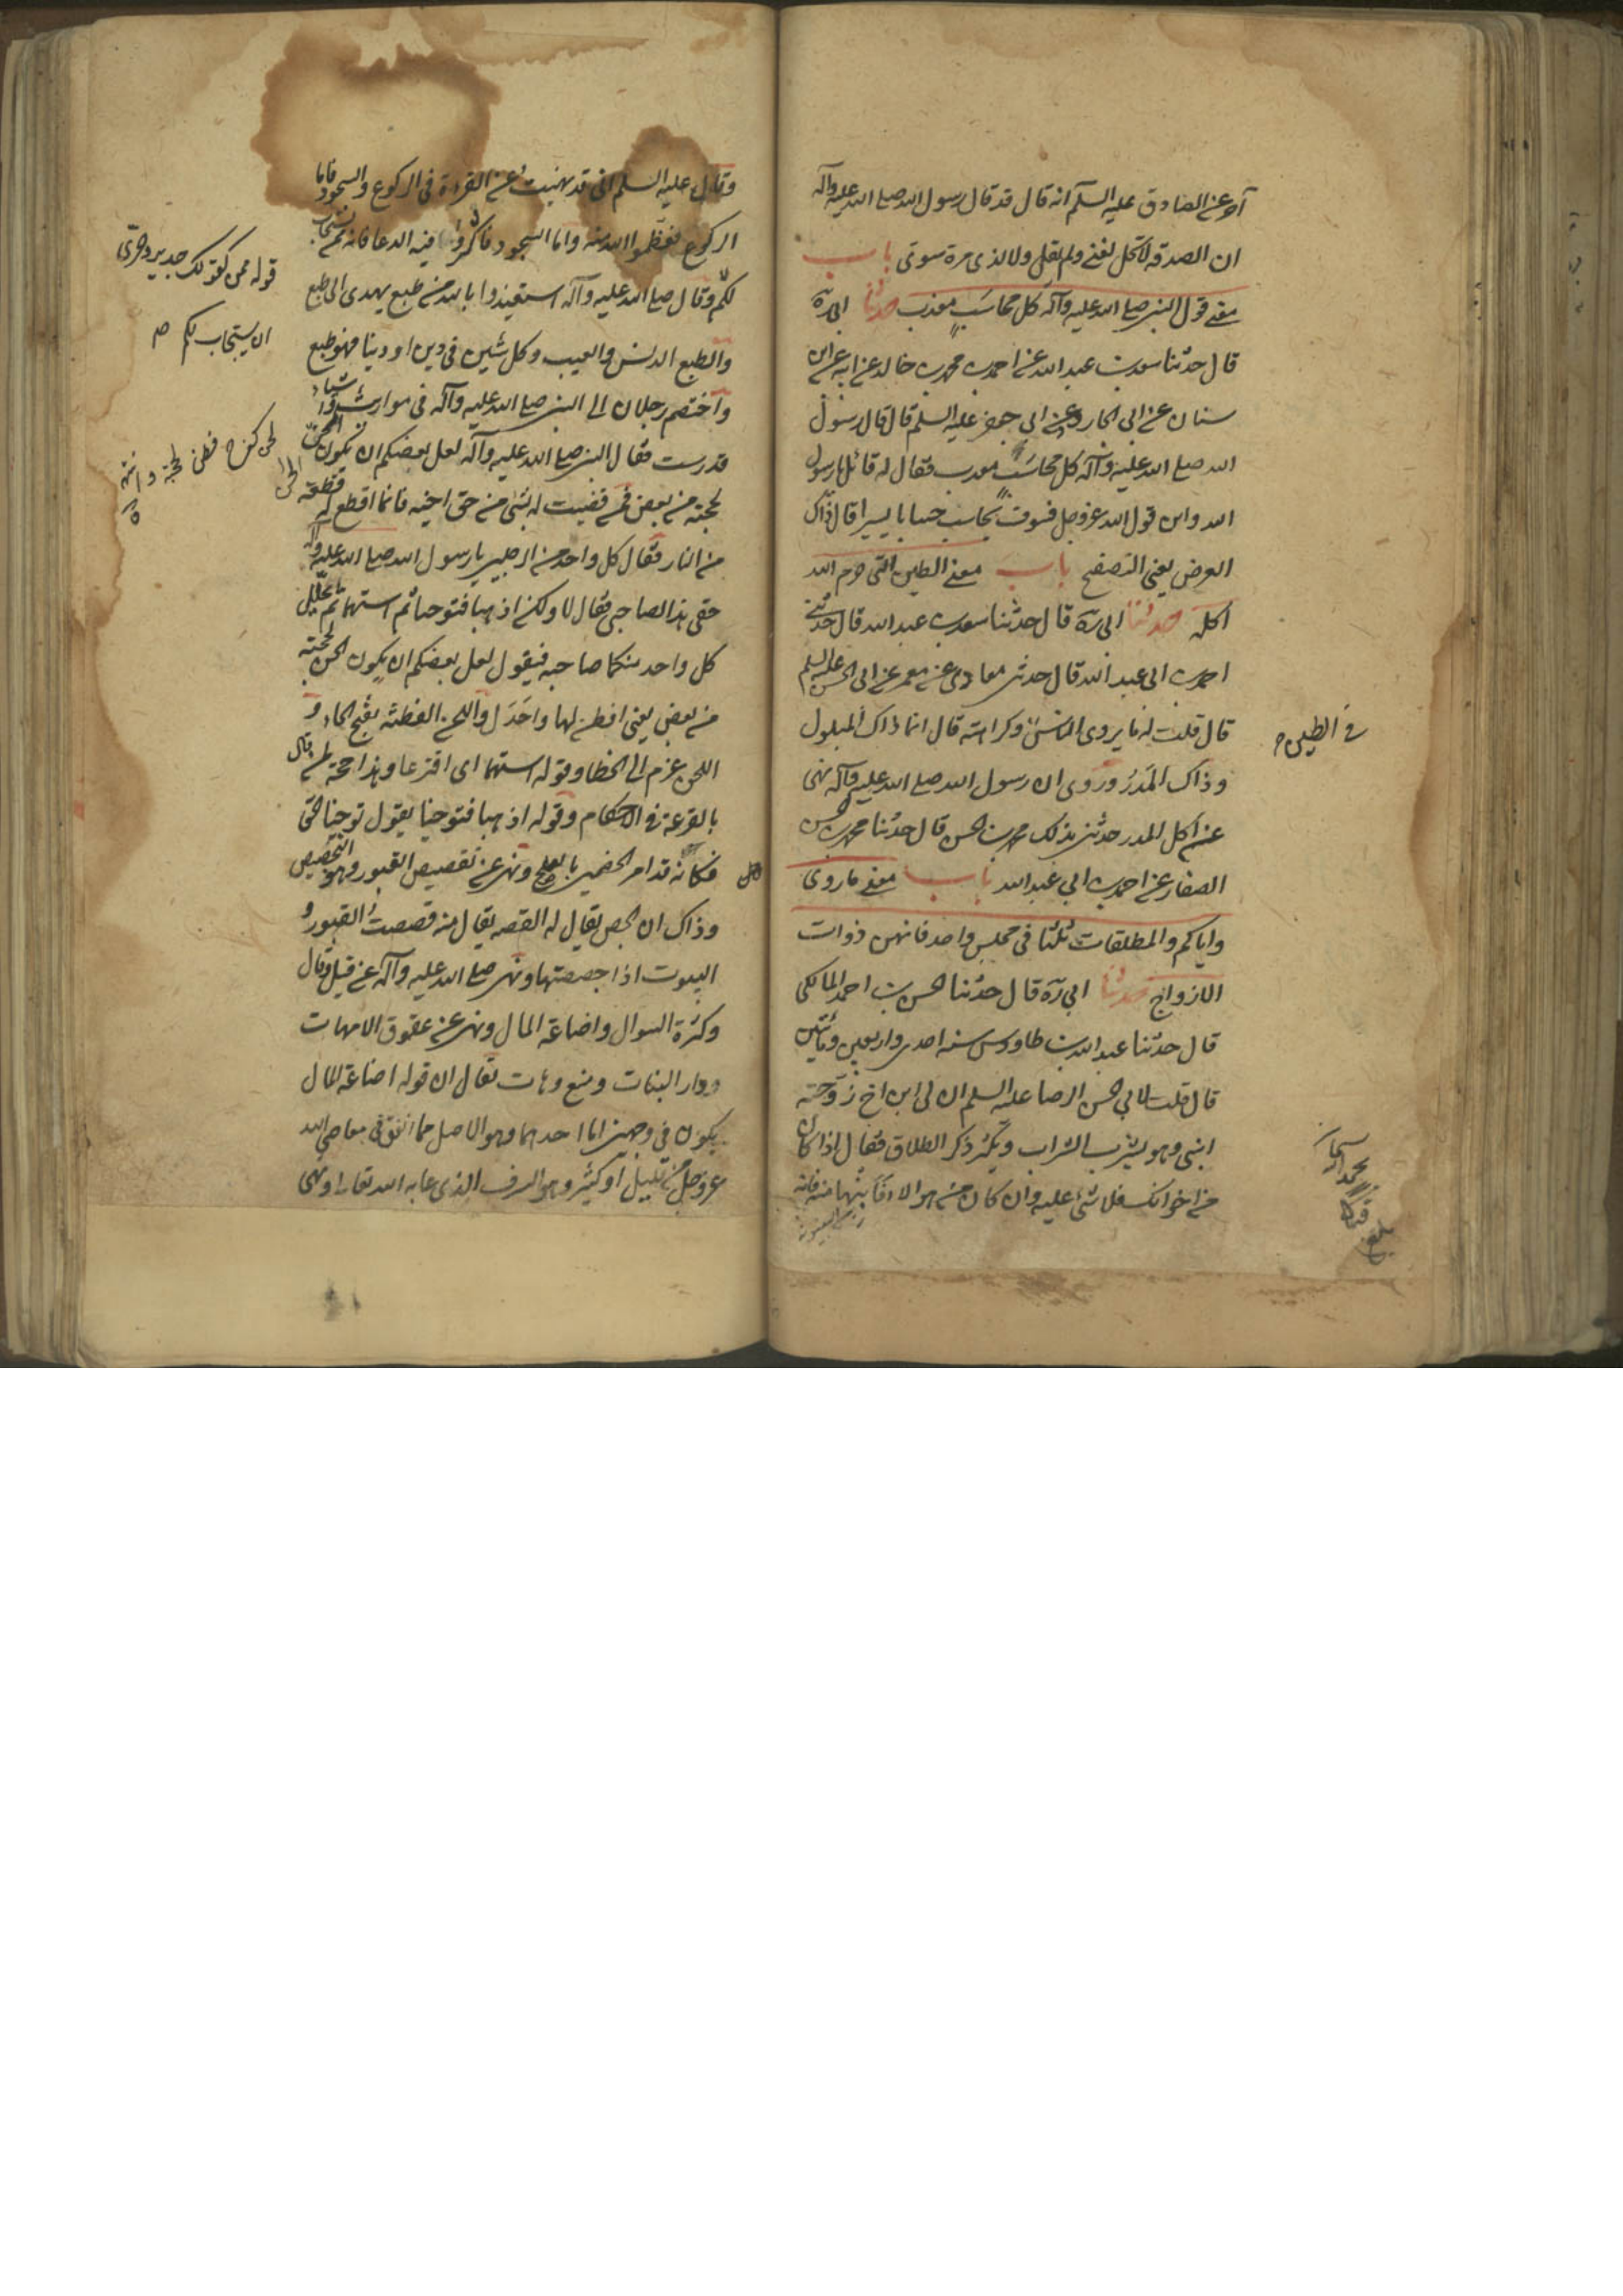 آخر عن الصادق عليه السلم انه قال قد قال رسول الله صلى الله عليه وآله
ان الصدقة لا تحل لغني ولم يقل ولا لذي مرة سوي باب
معنى قول النبي صلى الله عليه وآله كل محاسب معذب حدثنا ابي ره
قال حدثنا سعد بن عبد الله عن احمد بن محمد بن خالد عن ابيه عن ابن
سنان عن ابي الجارود عن ابي جعفر عليه السلم قال قال رسول
الله صلى الله عليه وآله كل محاسب معذب فقال له قائل يا رسول
الله واين قول الله عز وجل فسوف يحاسب حسابا يسيرا قال ذاك
العرض يعني التصفح باب معنى الطين التي حرم الله
اكله حدثنا ابي ره قال حدثنا سعد بن عبد الله قال حدثني
احمد بن ابي عبد الله قال حدثني معاذي عن معمر عن ابي الحسن عليه السلم
قال قلت له ما يروي الناس وكراهته قال انما ذاك المبلول
وذاك المدر وروى ان رسول الله صلى الله عليه وآله نهى
عن اكل المدر حدثني بذلك محمد بن الحسن قال حدثنا محمد بن الحسن
الصفار عن احمد بن ابي عبد الله باب معنى ما روي
واياكم والمطلقات ثلثا في مجلس واحد فانهن ذوات
الازواج حدثنا ابي ره قال حدثنا الحسن بن احمد المالكي
قال حدثنا عبد الله بن طاووس سنة احدى واربعين ومائتين
قال قلت لابي الحسن الرضا عليه السلم ان لي ابن اخ زوجته
ابنتي وهو يشرب الشراب ويكثر ذكر الطلاق فقال اذا كان
من اخوانك فلا شيء عليه وان كان من هؤلاء فابنها منه فانه
في الطين
وقال عليه السلم اني قد نهيت عن القراءة في الركوع والسجود فاما
الركوع فعظموا الله فيه واما السجود فاكثروا فيه الدعا فانه قمن يستجاب
لكم وقال صلى الله عليه وآله استعيذوا بالله من طبع يهدي الى طبع
والطبع الدنس والعيب وكل شين في دين او دنيا فهو طبع
واختصم رجلان الى النبي صلى الله عليه وآله في مواريث واشياء
قد درست فقال النبي صلى الله عليه وآله لعل بعضكم ان يكون الحن
بحجته من بعض فمن قضيت له بشيء من حق اخيه فانما اقطع له قطعة
من النار فقال كل واحد من الرجلين يا رسول الله صلى الله عليه وآله
حقي هذا لصاحبي فقال لا ولكن اذهبا فتوخيا ثم استهما ثم ليحلل
كل واحد منكما صاحبه فيقول لعل بعضكم ان يكون الحن بحجته
من بعض يعني افطن لها واجدل واللحن الفطنة بفتح الحاء و
اللحن بجزم الحا الخطا وقوله استهما اي اقترعا وهذا حجة لمن قال
بالقرعة في الاحكام وقوله اذهبا فتوخيا يقول توخيا الحق
فكانه قد امر الخصمين بالصلح ونهى عن تقصيص القبور وهو التجصيص
وذاك ان الجص يقال له القصه يقال منه قصصت القبور و
البيوت اذا جصصتها ونهى صلى الله عليه وآله عن قيل وقال
وكثرة السوال واضاعة المال ونهى عن عقوق الامهات
وواد البنات ومنع وهات يقال ان قوله اضاعة المال
يكون في وجهين اما احدهما وهو الاصل مما انفق في معاصي الله
عز وجل من قليل او كثير وهو السرف الذي عابه الله تعالى ونهى
قوله قمن كقولك جدير وحري
ان يستجاب لكم